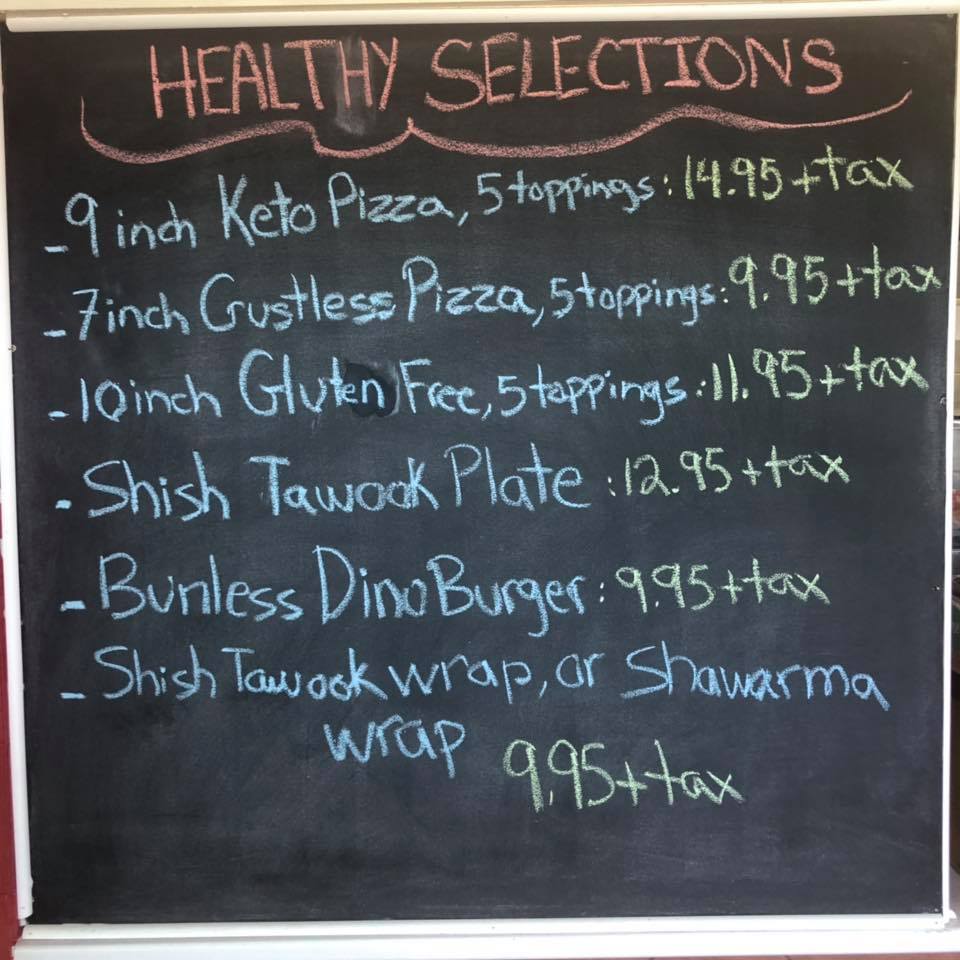 HEALTHY SELECTIONS
- 9 inch Keto Pizza, 5 toppings: 14.95 + tax
- 7inch Crustless Pizza, 5 toppings: 9.95 + tax
- 10 inch Gluten Free, 5 toppings: 11.95 + tax
- Shish Tawook Plate: 12.95 + tax
- Bunless Dino Burger: 9.95 + tax
- Shish Tawook wrap, or Shawarma
wrap
9.95 + tax